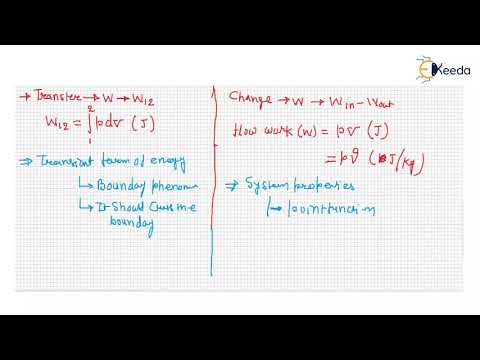 Ekeeda
→ Transfer → W → W12
W12 = ∫ pdv (J)
2
1
⇒ Transient form of energy
↳ Bounday phenome
↳ It Should Cross the
bounday
Change → W → Win - Wout
flow work (W) = pv (J)
= pϑ (kJ/kg)
⇒ System properies
↳ point function